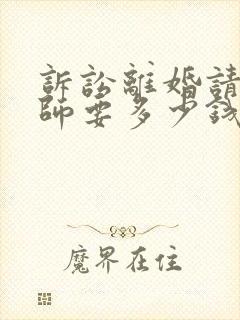 訴訟離婚請
師要多少錢
魔界在住